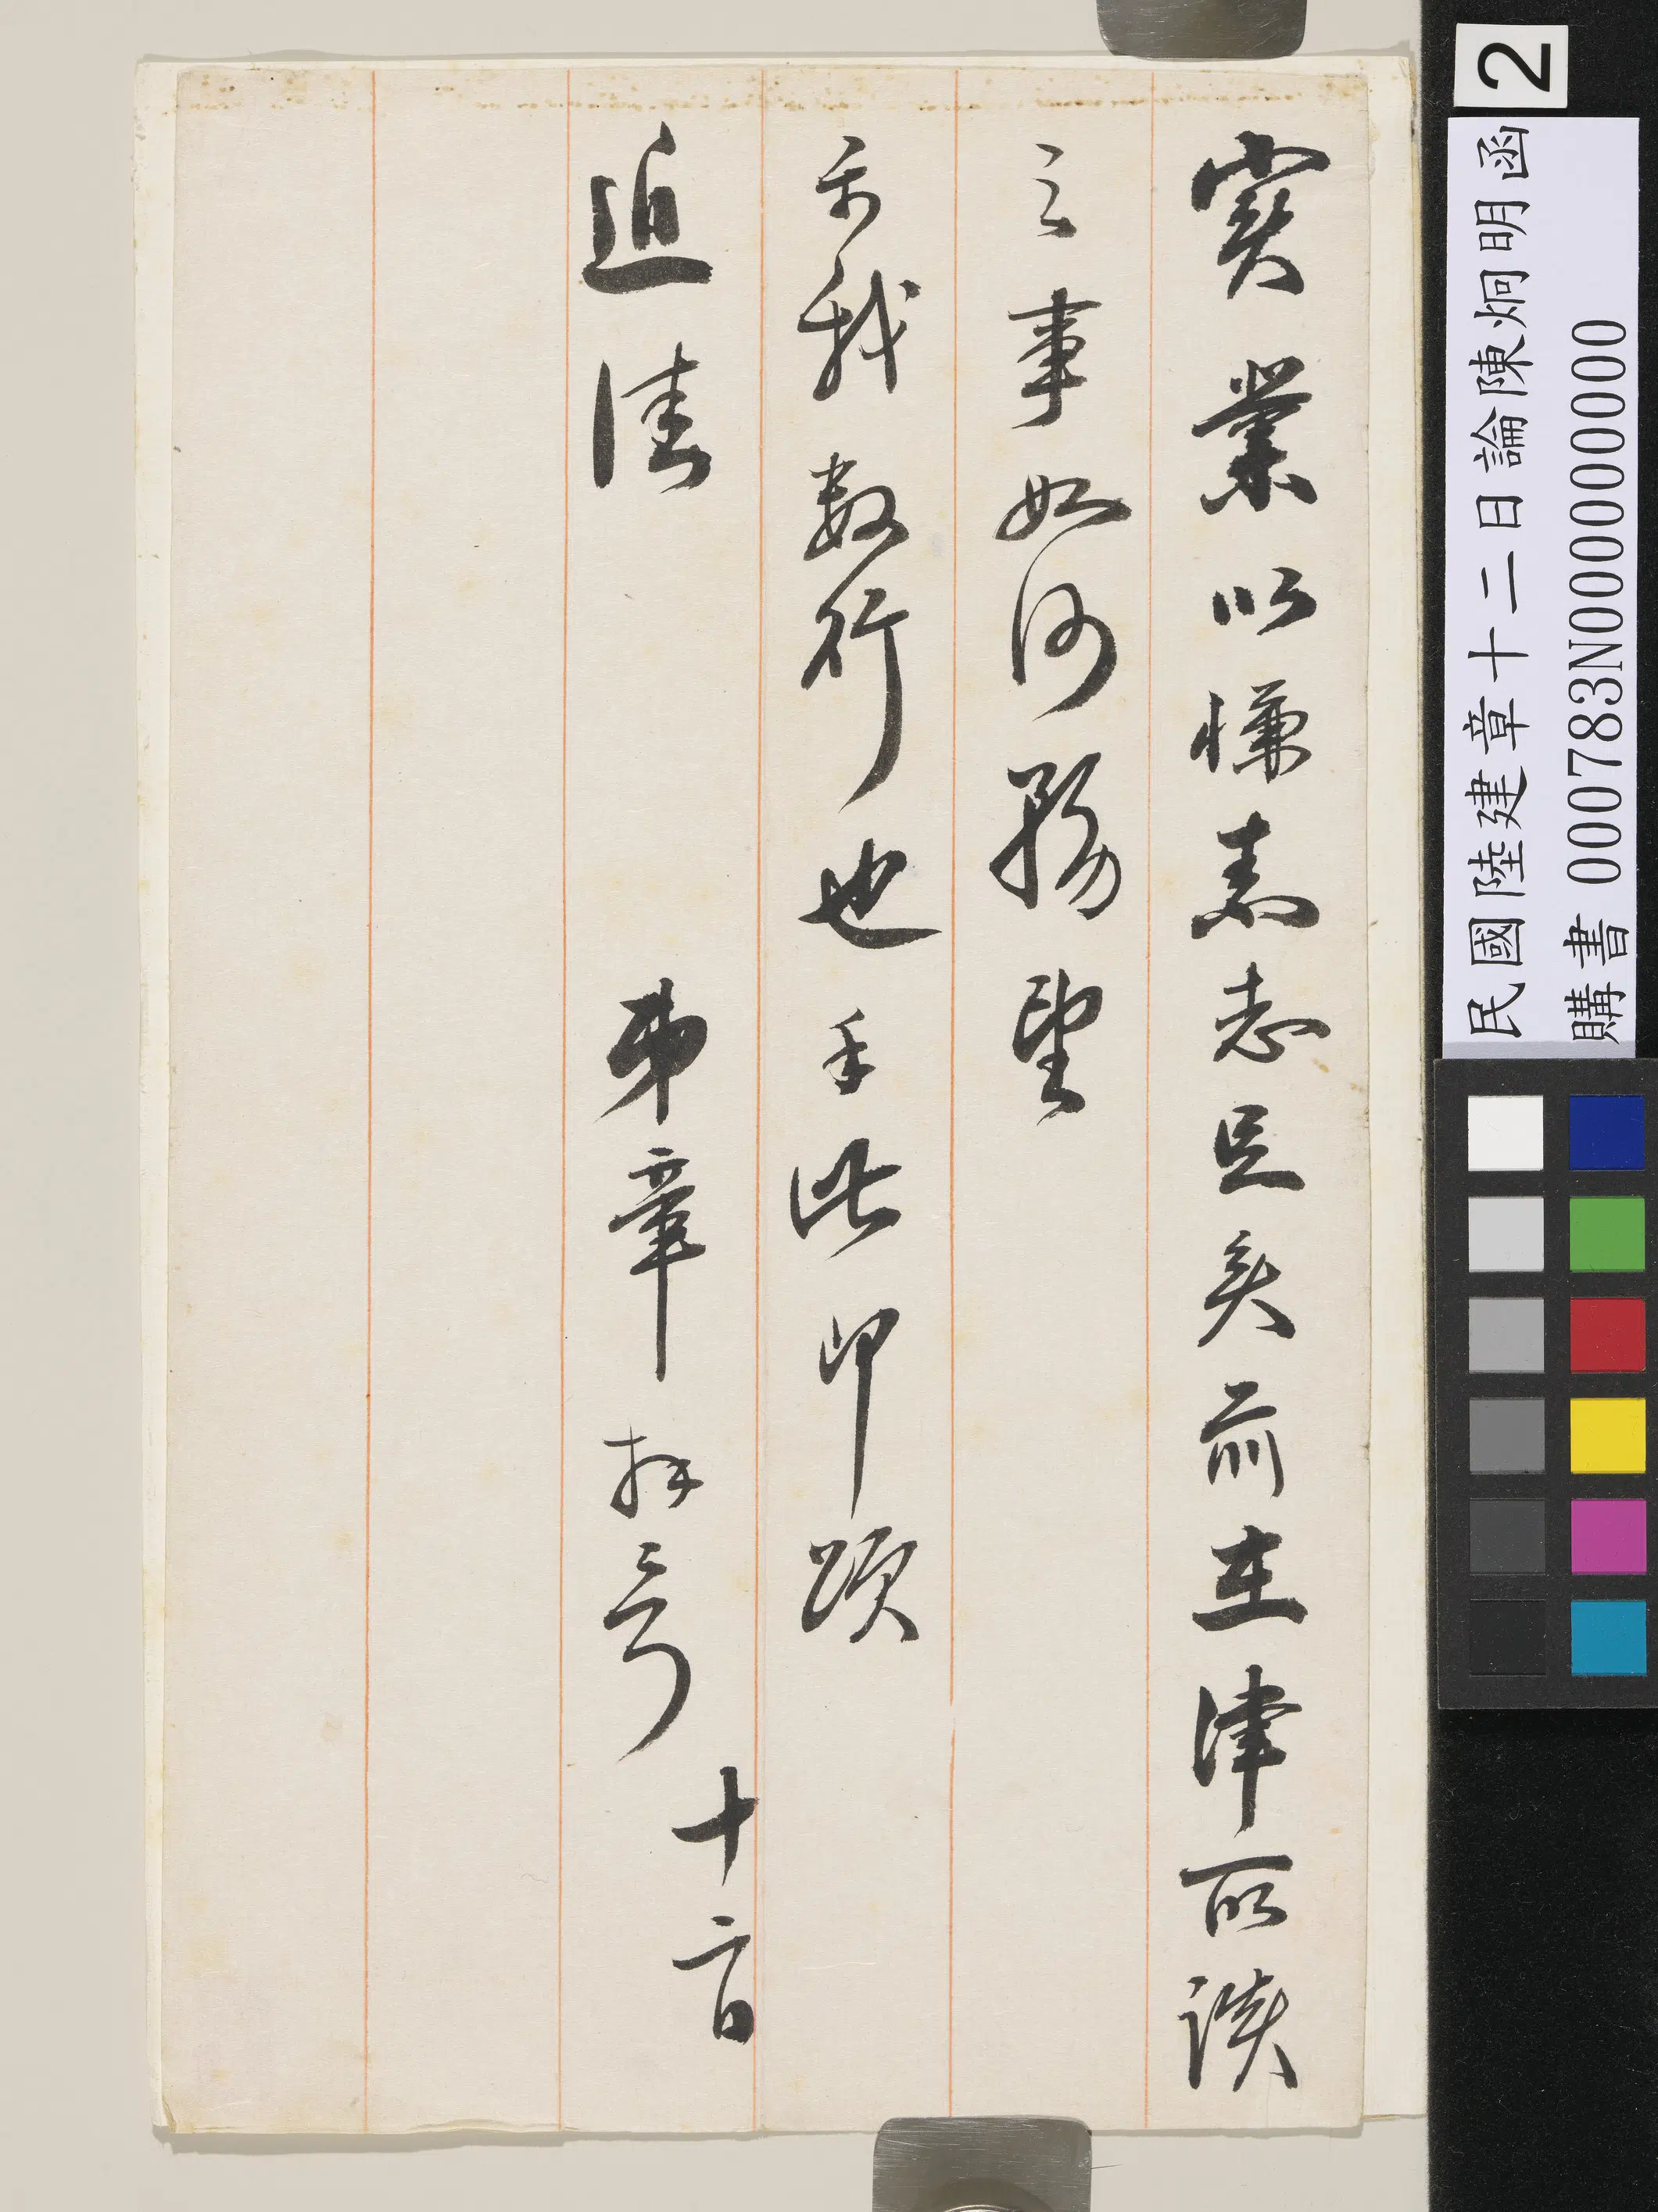 實業以慊素志足矣前在津所談
之事如何務望
示我數行也手此即頌
近佳
弟章拜言
十二日
2
民國陸建章十二日論陳炯明函
購書 000783N000000000